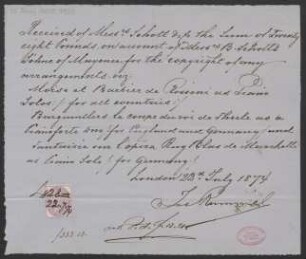 Received of Messrs Schott & Co the Sum of Twenty
eight Pounds on account of Messrs B. Schott's
Söhne of Mayence for the copyright of my
arrangements viz.
Moïse et Barbier de Rossini as Piano
Solos (for all countries)
Burgmüllers la coupe du roi de Thule as a
Pianoforte Solo (for England and Germany) and
Fantaisie on Opera Ruy Blas de Marchetti
as Piano Solo (for Germany)
London 22d July 1874
£28
22-7/74